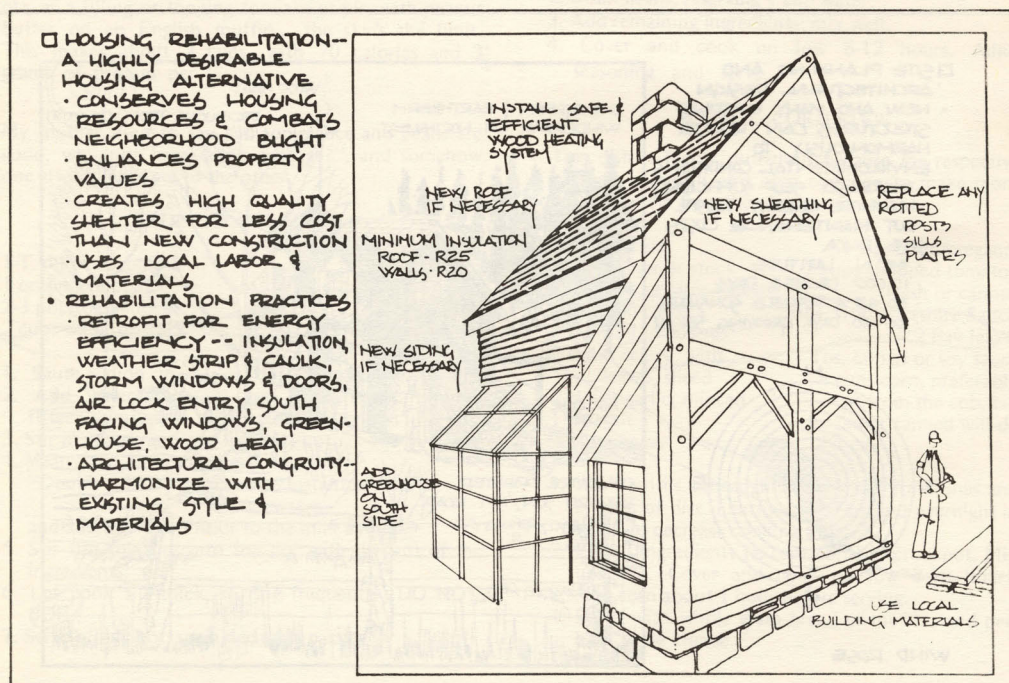 □ HOUSING REHABILITATION--
A HIGHLY DESIRABLE
HOUSING ALTERNATIVE
· CONSERVES HOUSING
RESOURCES & COMBATS
NEIGHBORHOOD BLIGHT
· ENHANCES PROPERTY
VALUES
· CREATES HIGH QUALITY
SHELTER FOR LESS COST
THAN NEW CONSTRUCTION
· USES LOCAL LABOR &
MATERIALS
• REHABILITATION PRACTICES
· RETROFIT FOR ENERGY
EFFICIENCY -- INSULATION,
WEATHER STRIP & CAULK,
STORM WINDOWS & DOORS,
AIR LOCK ENTRY, SOUTH
FACING WINDOWS, GREEN-
HOUSE, WOOD HEAT
· ARCHITECTURAL CONGRUITY--
HARMONIZE WITH
EXISTING STYLE &
MATERIALS
INSTALL SAFE &
EFFICIENT
WOOD HEATING
SYSTEM
NEW ROOF
IF NECESSARY
MINIMUM INSULATION
ROOF - R25
WALLS · R20
NEW SIDING
IF NECESSARY
ADD
GREENHOUSE
ON
SOUTH
SIDE
NEW SHEATHING
IF NECESSARY
REPLACE ANY
ROTTED
POSTS
SILLS
PLATES
USE LOCAL
BUILDING MATERIALS